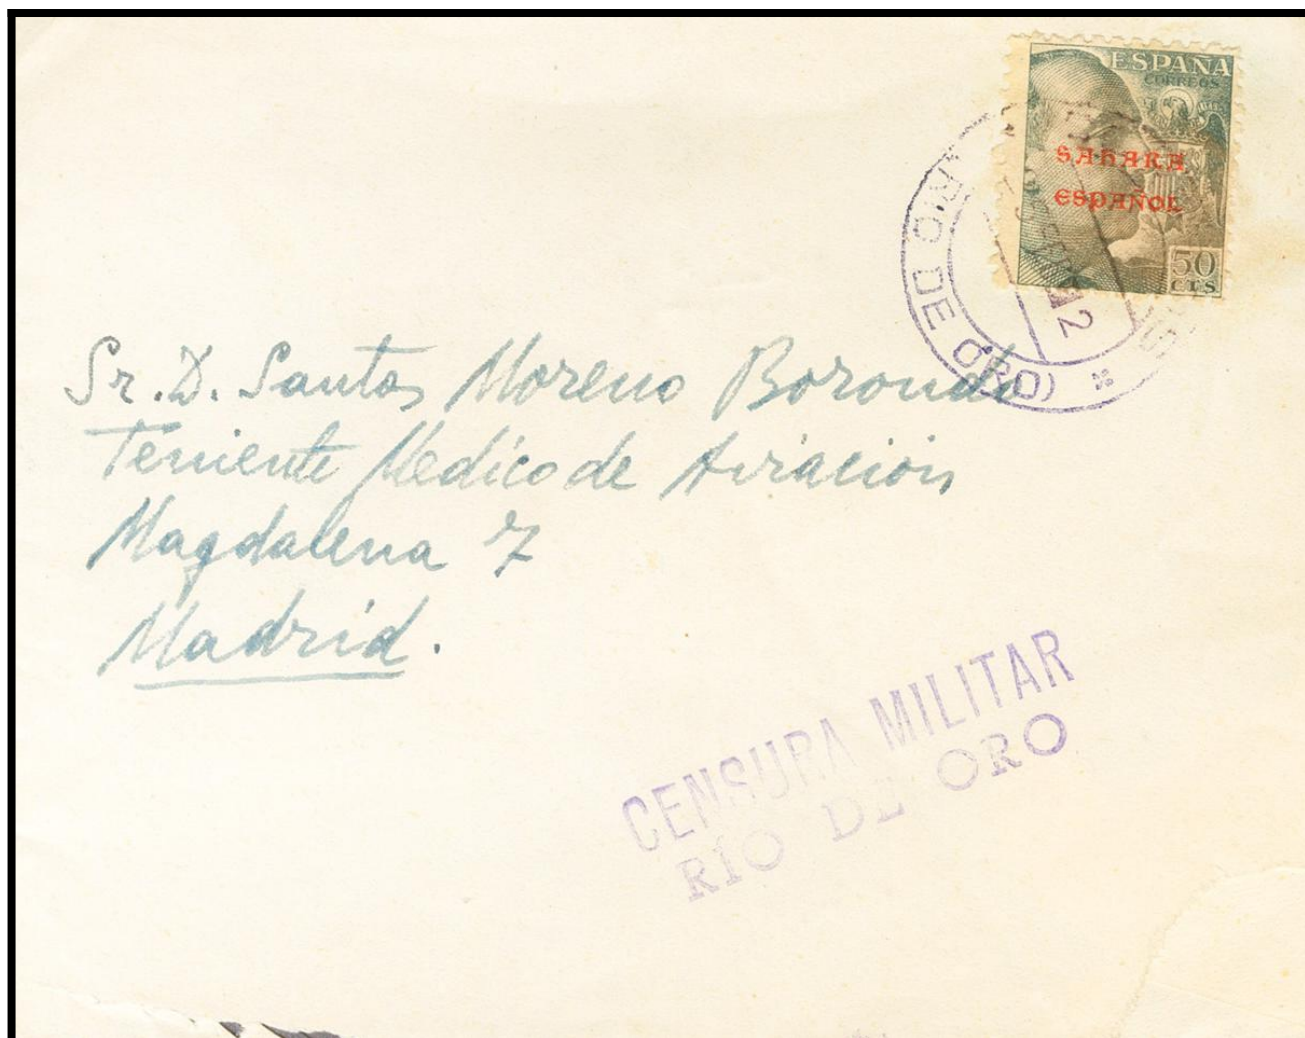 ESPAÑA
CORREOS
SAHARA
ESPAÑOL
50
CTS
RIO DE ORO)
Sr. D. Santos Moreno Borondo
Teniente Medico de Aviación
Magdalena 7
Madrid.
CENSURA MILITAR
RÍO DE ORO